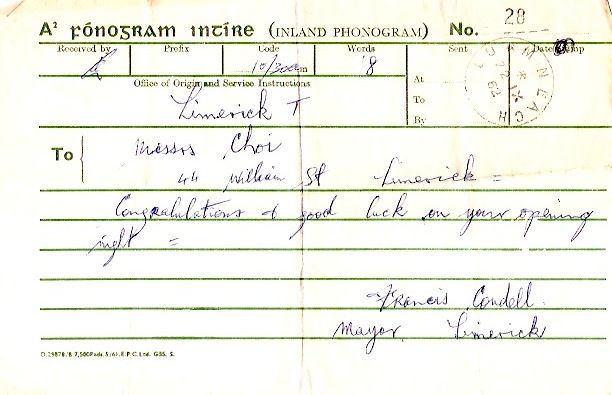 A² FÓNOGRAM INTÍRE (INLAND PHONOGRAM) No. 28
Received by Prefix Code Words Sent Date Stamp
10/30am 18
Office of Origin and Service Instructions
At
Limerick T
To
By
To Messrs Choi
44 William St Limerick =
Congratulations & good luck on your opening
night =
Francis Condell.
Mayor, Limerick
O.29878/8.7,500Pads.5/61.E.P.C.Ltd. G85. S.